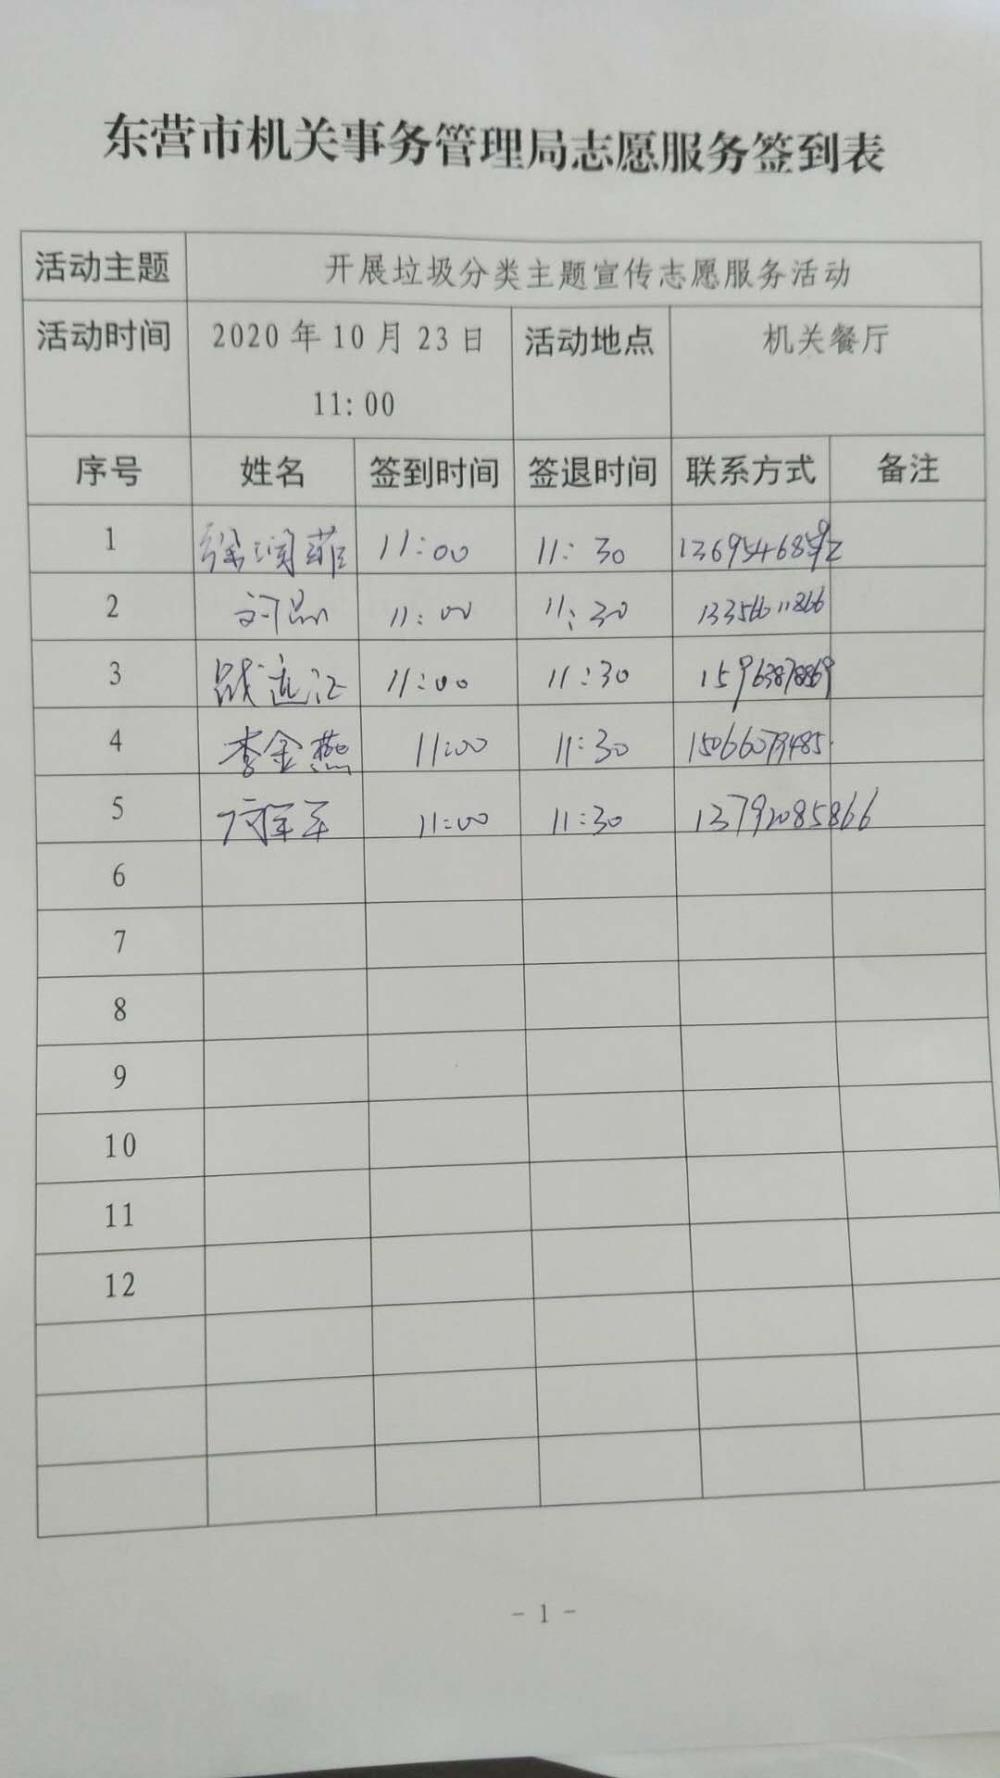 东营市机关事务管理局志愿服务签到表
活动主题 开展垃圾分类主题宣传志愿服务活动
活动时间 2020年10月23日 活动地点 机关餐厅
11:00
序号 姓名 签到时间 签退时间 联系方式 备注
1 徐润菲 11:00 11:30
2 刘磊 11:00 11:30 13356611866
3 战远江 11:00 11:30
4 李金燕 11:00 11:30 15066079485
5 11:00 11:30 13792085866
6
7
8
9
10
11
12
- 1 -